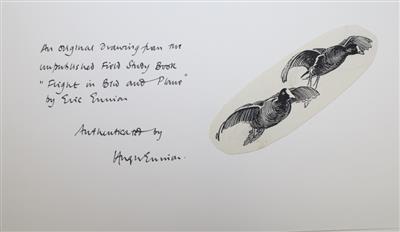 An original Drawing from the
unpublished Field Study Book
"Flight in Bird and Plane"
by Eric Ennion
Authenticated by
Hugh Ennion.